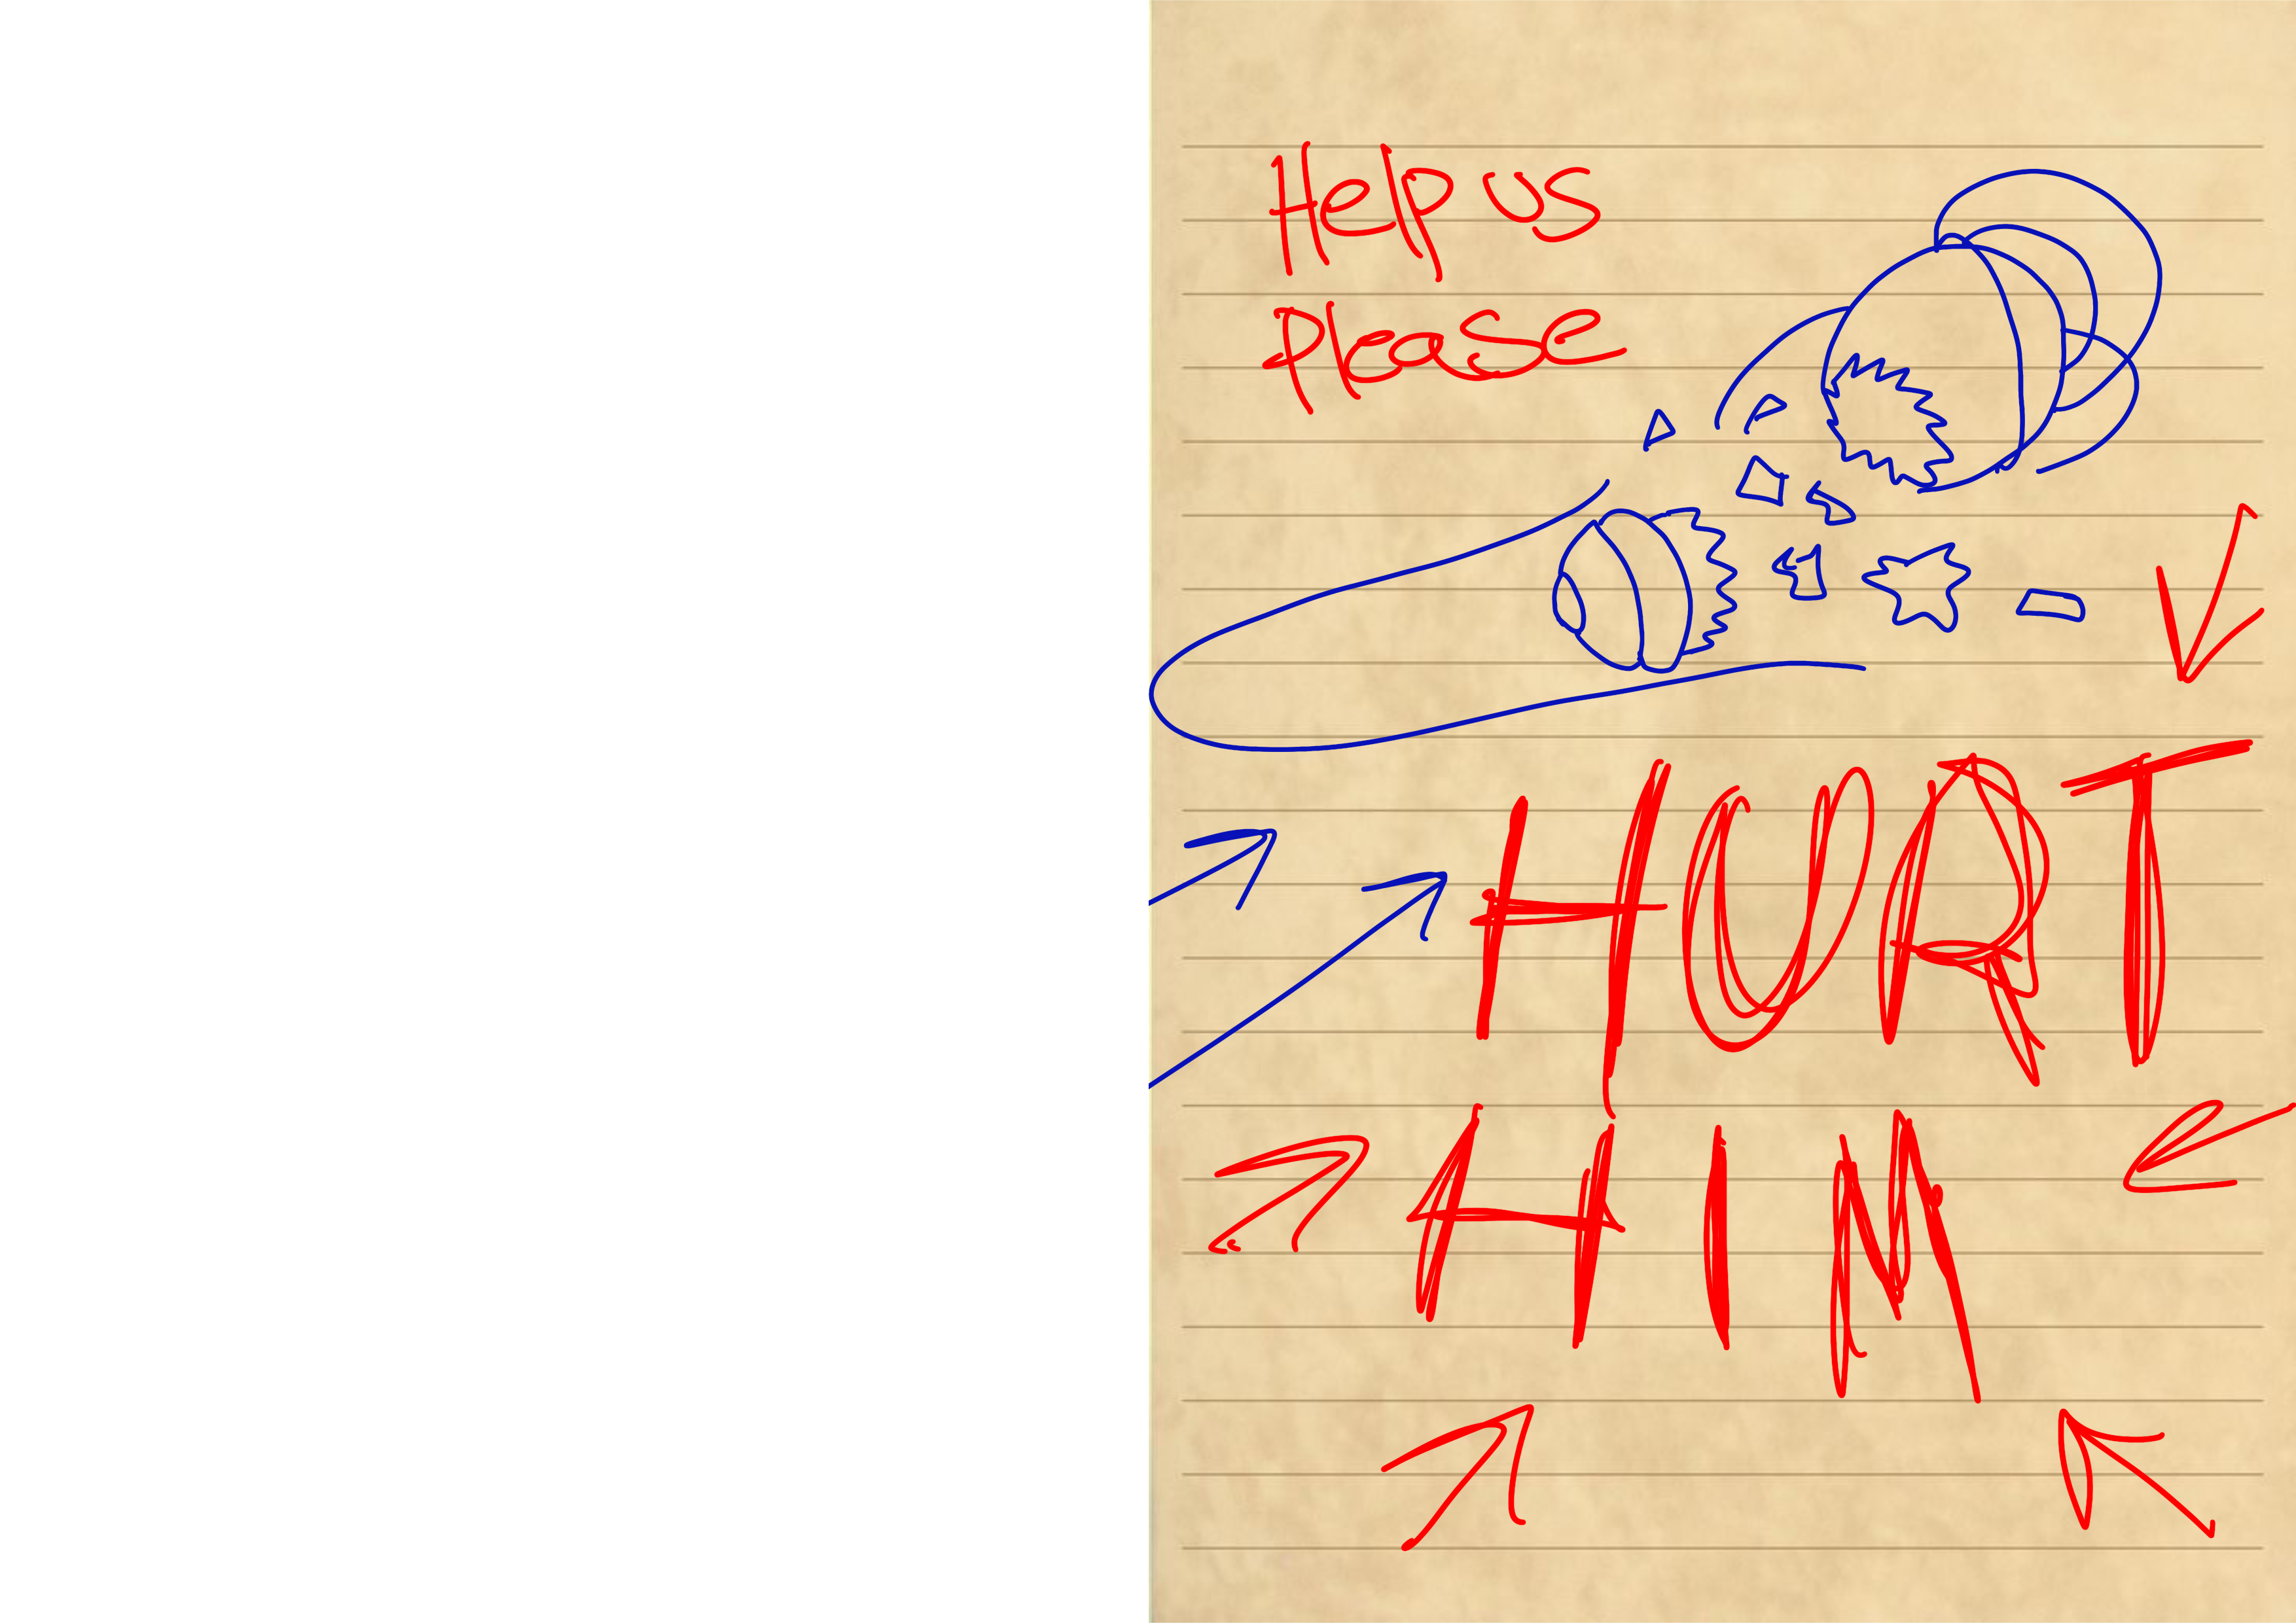 Help us
Please
HURT
HIM